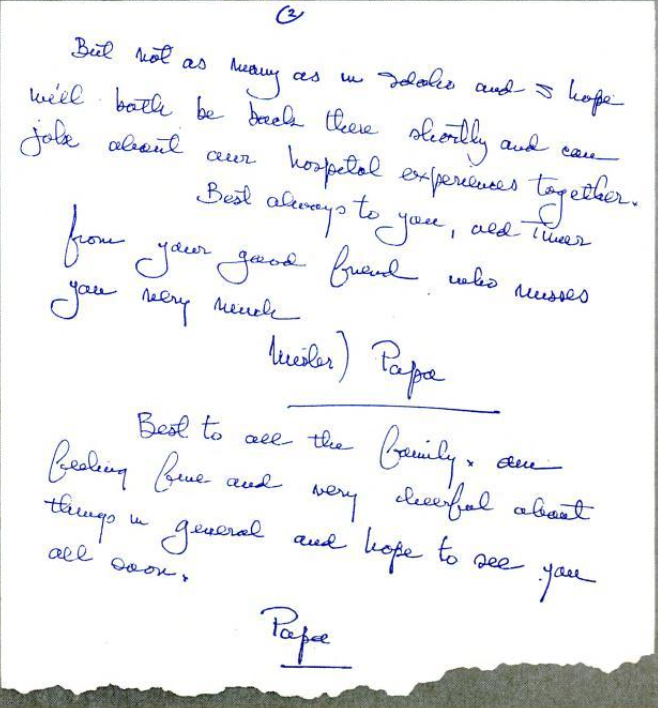 (2)
But not as many as in Idaho and I hope
we'll both be back there shortly and can
joke about our hospital experiences together.
Best always to you, old timer
from your good friend who misses
you very much
(Mister) Papa
Best to all the family. am
feeling fine and very cheerful about
things in general and hope to see you
all soon.
Papa